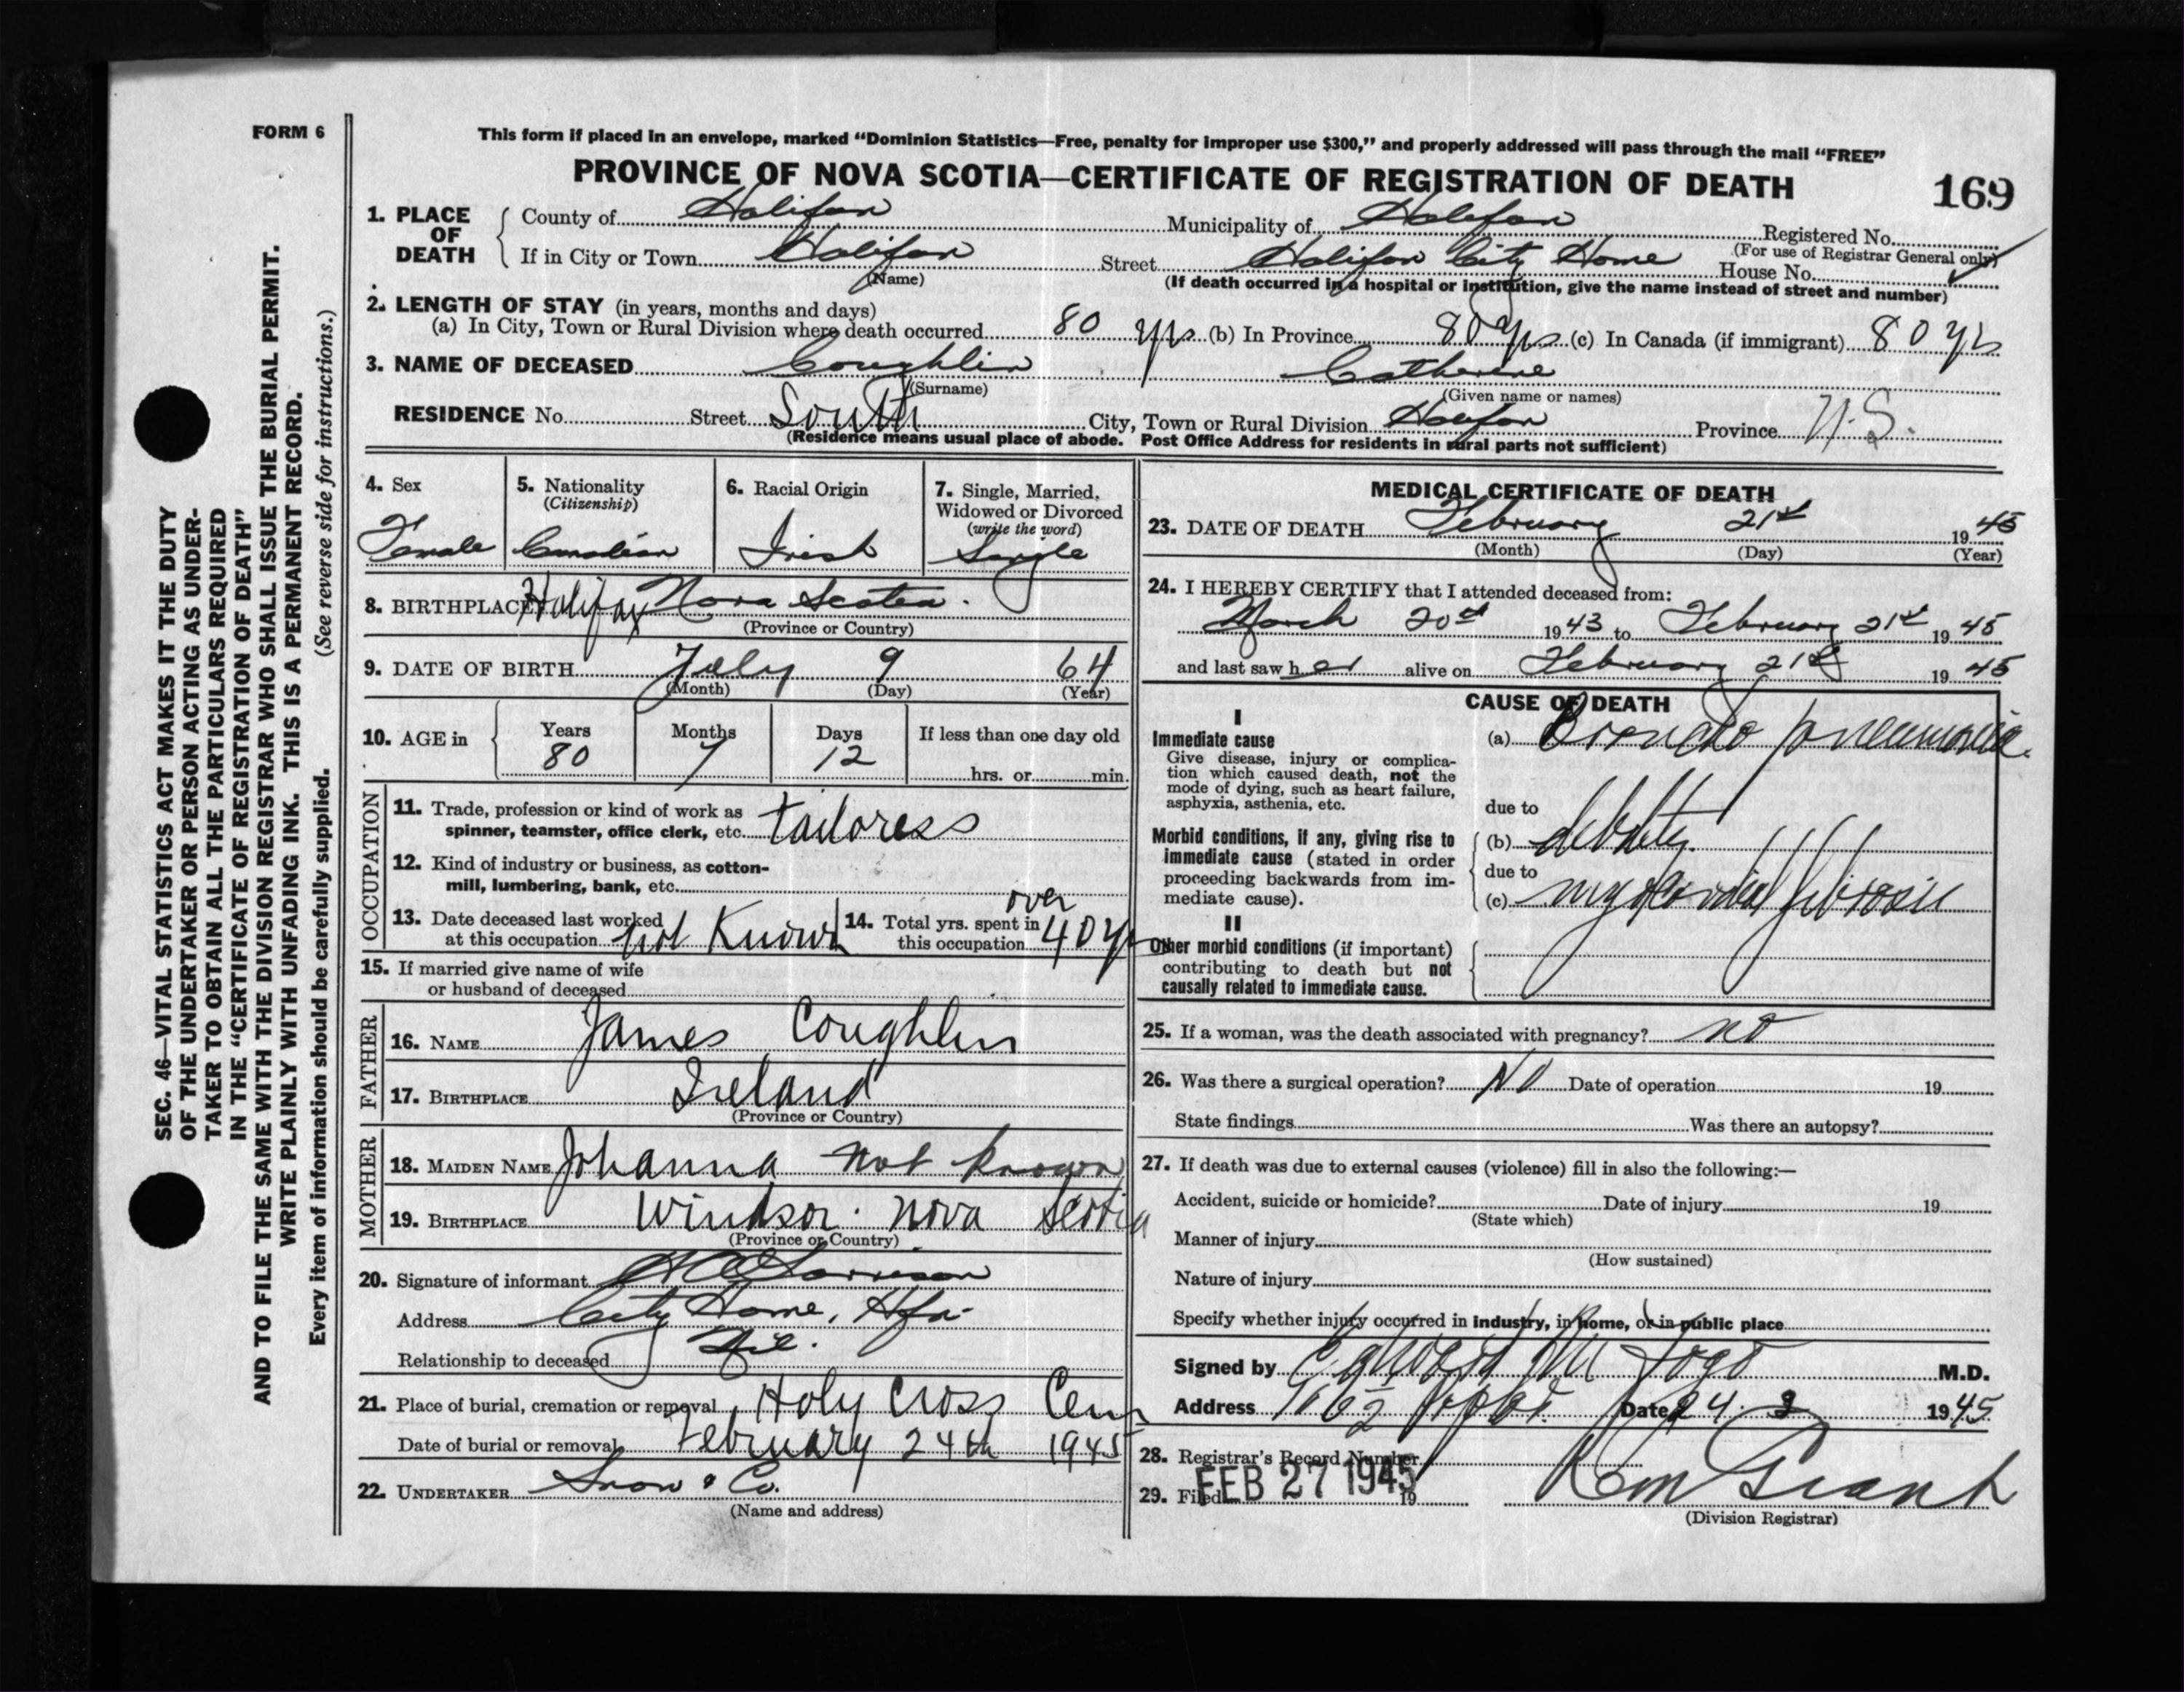 FORM 6
This form if placed in an envelope, marked “Dominion Statistics—Free, penalty for improper use $300,” and properly addressed will pass through the mail “FREE”
PROVINCE OF NOVA SCOTIA—CERTIFICATE OF REGISTRATION OF DEATH
169
1. PLACE OF DEATH
County of Halifax Municipality of Halifax Registered No.
(For use of Registrar General only)
If in City or Town Halifax Street Halifax City Home House No.
(Name) (If death occurred in a hospital or institution, give the name instead of street and number)
2. LENGTH OF STAY (in years, months and days)
(a) In City, Town or Rural Division where death occurred 80 yrs (b) In Province 80 yrs (c) In Canada (if immigrant) 80 yrs
3. NAME OF DECEASED Coughlin Catherine
(Surname) (Given name or names)
RESIDENCE No. Street South City, Town or Rural Division Halifax Province N.S.
(Residence means usual place of abode. Post Office Address for residents in rural parts not sufficient)
4. Sex
Female
5. Nationality
(Citizenship)
Canadian
6. Racial Origin
Irish
7. Single, Married,
Widowed or Divorced
(write the word)
Single
8. BIRTHPLACE Halifax Nova Scotia.
(Province or Country)
9. DATE OF BIRTH July 9 64
(Month) (Day) (Year)
10. AGE in
Years Months Days If less than one day old
80 7 12
hrs. or min.
OCCUPATION
11. Trade, profession or kind of work as
spinner, teamster, office clerk, etc. tailoress
12. Kind of industry or business, as cotton-
mill, lumbering, bank, etc.
13. Date deceased last worked
at this occupation not Known
14. Total yrs. spent in
this occupation over 40 yrs
15. If married give name of wife
or husband of deceased
FATHER
16. NAME James Coughlin
17. BIRTHPLACE Ireland
(Province or Country)
MOTHER
18. MAIDEN NAME Johanna not known
19. BIRTHPLACE Windsor. Nova Scotia
(Province or Country)
20. Signature of informant
Address City Home, Hfx
Relationship to deceased Nil.
21. Place of burial, cremation or removal Holy Cross Cem
Date of burial or removal February 24th 1945
22. UNDERTAKER Snow & Co.
(Name and address)
MEDICAL CERTIFICATE OF DEATH
23. DATE OF DEATH February 21st 1945
(Month) (Day) (Year)
24. I HEREBY CERTIFY that I attended deceased from:
March 20th 1943 to February 21st 1945
and last saw her alive on February 21st 1945
CAUSE OF DEATH
I
Immediate cause
Give disease, injury or complica-
tion which caused death, not the
mode of dying, such as heart failure,
asphyxia, asthenia, etc.
(a) Broncho pneumonia.
due to
Morbid conditions, if any, giving rise to
immediate cause (stated in order
proceeding backwards from im-
mediate cause).
(b) debility.
due to
(c) myocardial fibrosis
II
Other morbid conditions (if important)
contributing to death but not
causally related to immediate cause.
25. If a woman, was the death associated with pregnancy? no
26. Was there a surgical operation? No Date of operation 19
State findings Was there an autopsy?
27. If death was due to external causes (violence) fill in also the following:—
Accident, suicide or homicide? Date of injury 19
(State which)
Manner of injury
(How sustained)
Nature of injury
Specify whether injury occurred in industry, in home, or in public place
Signed by M.D.
Address Date 24. 2 1945
28. Registrar's Record Number
29. Filed FEB 27 1945 19
(Division Registrar)
SEC. 46—VITAL STATISTICS ACT MAKES IT THE DUTY
OF THE UNDERTAKER OR PERSON ACTING AS UNDER-
TAKER TO OBTAIN ALL THE PARTICULARS REQUIRED
IN THE “CERTIFICATE OF REGISTRATION OF DEATH”
AND TO FILE THE SAME WITH THE DIVISION REGISTRAR WHO SHALL ISSUE THE BURIAL PERMIT.
WRITE PLAINLY WITH UNFADING INK. THIS IS A PERMANENT RECORD.
Every item of information should be carefully supplied. (See reverse side for instructions.)